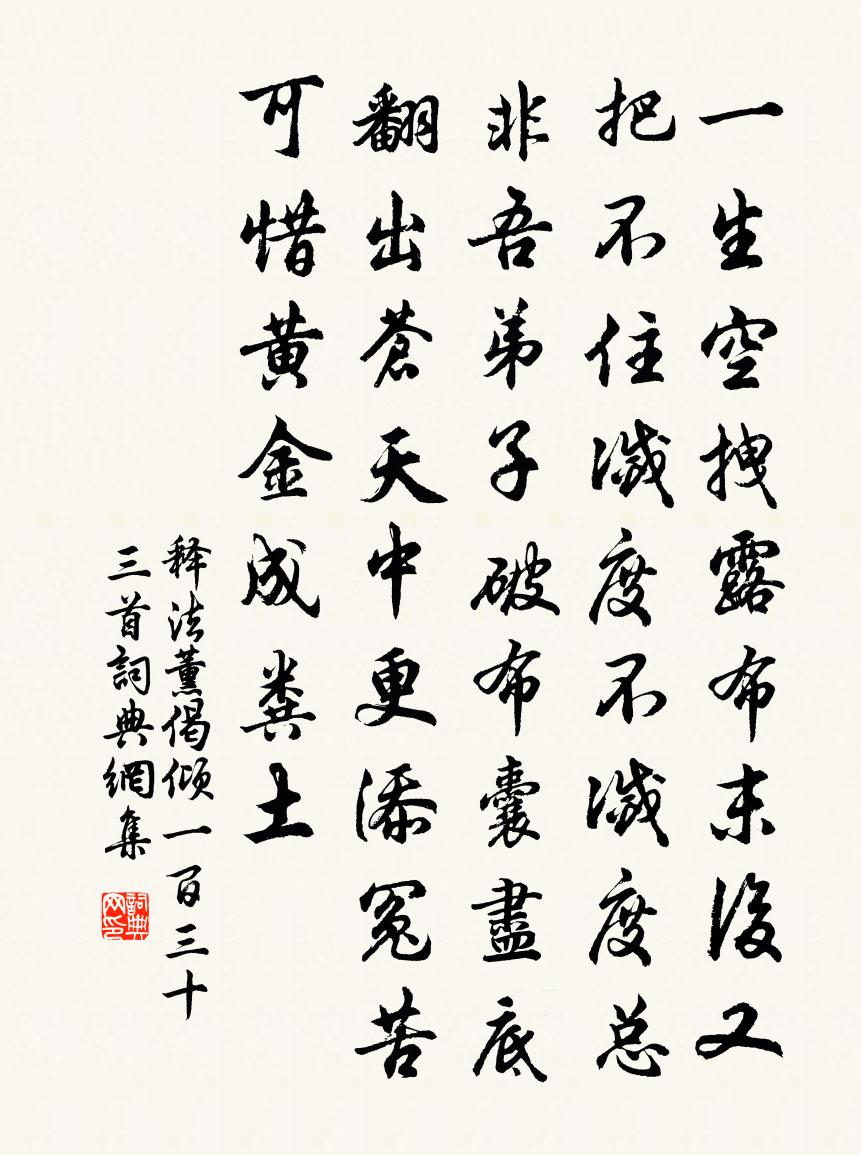 一生空拽露布末後又
把不住滅度不滅度总
非吾弟子破布囊盡底
翻出蒼天中更添冤苦
可惜黄金成糞土
释法薰偈傾一百三十
三首詞典網集
詞典
网印